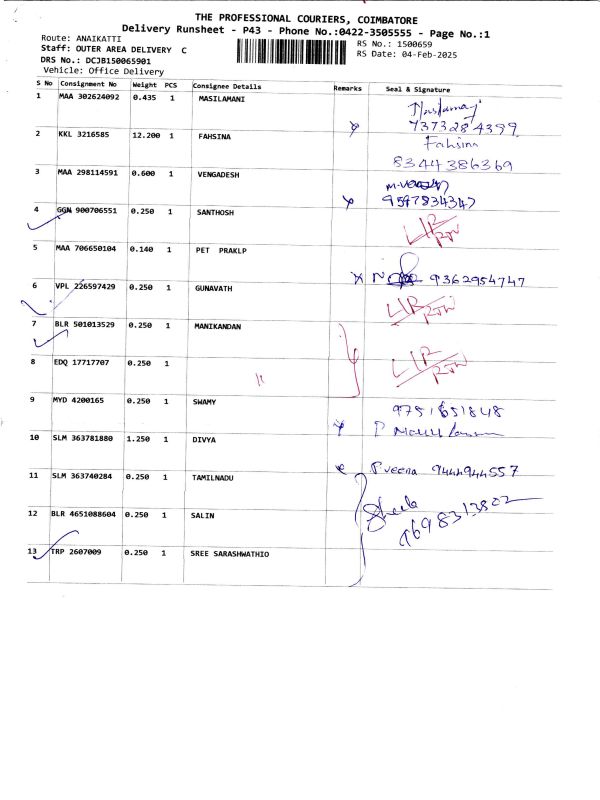 THE PROFESSIONAL COURIERS, COIMBATORE
Delivery Runsheet - P43 - Phone No.:0422-3505555 - Page No.:1
Route: ANAIKATTI
RS No.: 1500659
Staff: OUTER AREA DELIVERY C
RS Date: 04-Feb-2025
DRS No.: DCJB150065901
Vehicle: Office Delivery
S No Consignment No Weight PCS Consignee Details Remarks Seal & Signature
1 MAA 302624092 0.435 1 MASILAMANI
7373284399
2 KKL 3216585 12.200 1 FAHSINA Fahsina
8344386369
3 MAA 298114591 0.600 1 VENGADESH
9597834347
4 GGN 900706551 0.250 1 SANTHOSH
5 MAA 706650104 0.140 1 PET PRAKLP
9362954747
6 VPL 226597429 0.250 1 GUNAVATH
7 BLR 501013529 0.250 1 MANIKANDAN
8 EDQ 17717707 0.250 1 "
9 MYD 4200165 0.250 1 SWAMY
9751651848
10 SLM 363781880 1.250 1 DIVYA
Praveena 9444944557
11 SLM 363740284 0.250 1 TAMILNADU
12 BLR 4651088604 0.250 1 SALIN
7698313802
13 TRP 2607009 0.250 1 SREE SARASHWATHIO